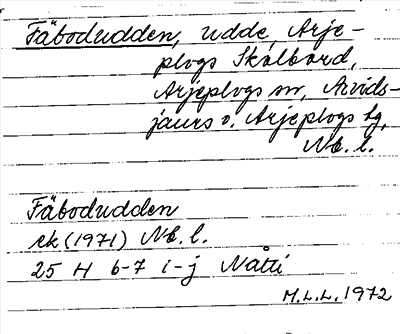 Fäbodudden, udde, Arje-
plogs Skålbord,
Arjeplogs sn, Arvids-
jaurs o. Arjeplogs tg,
Nb. l.
Fäbodudden
ek (1971) Nb. l.
25 H 6-7 i-j Nåtti
M.L.L. 1972